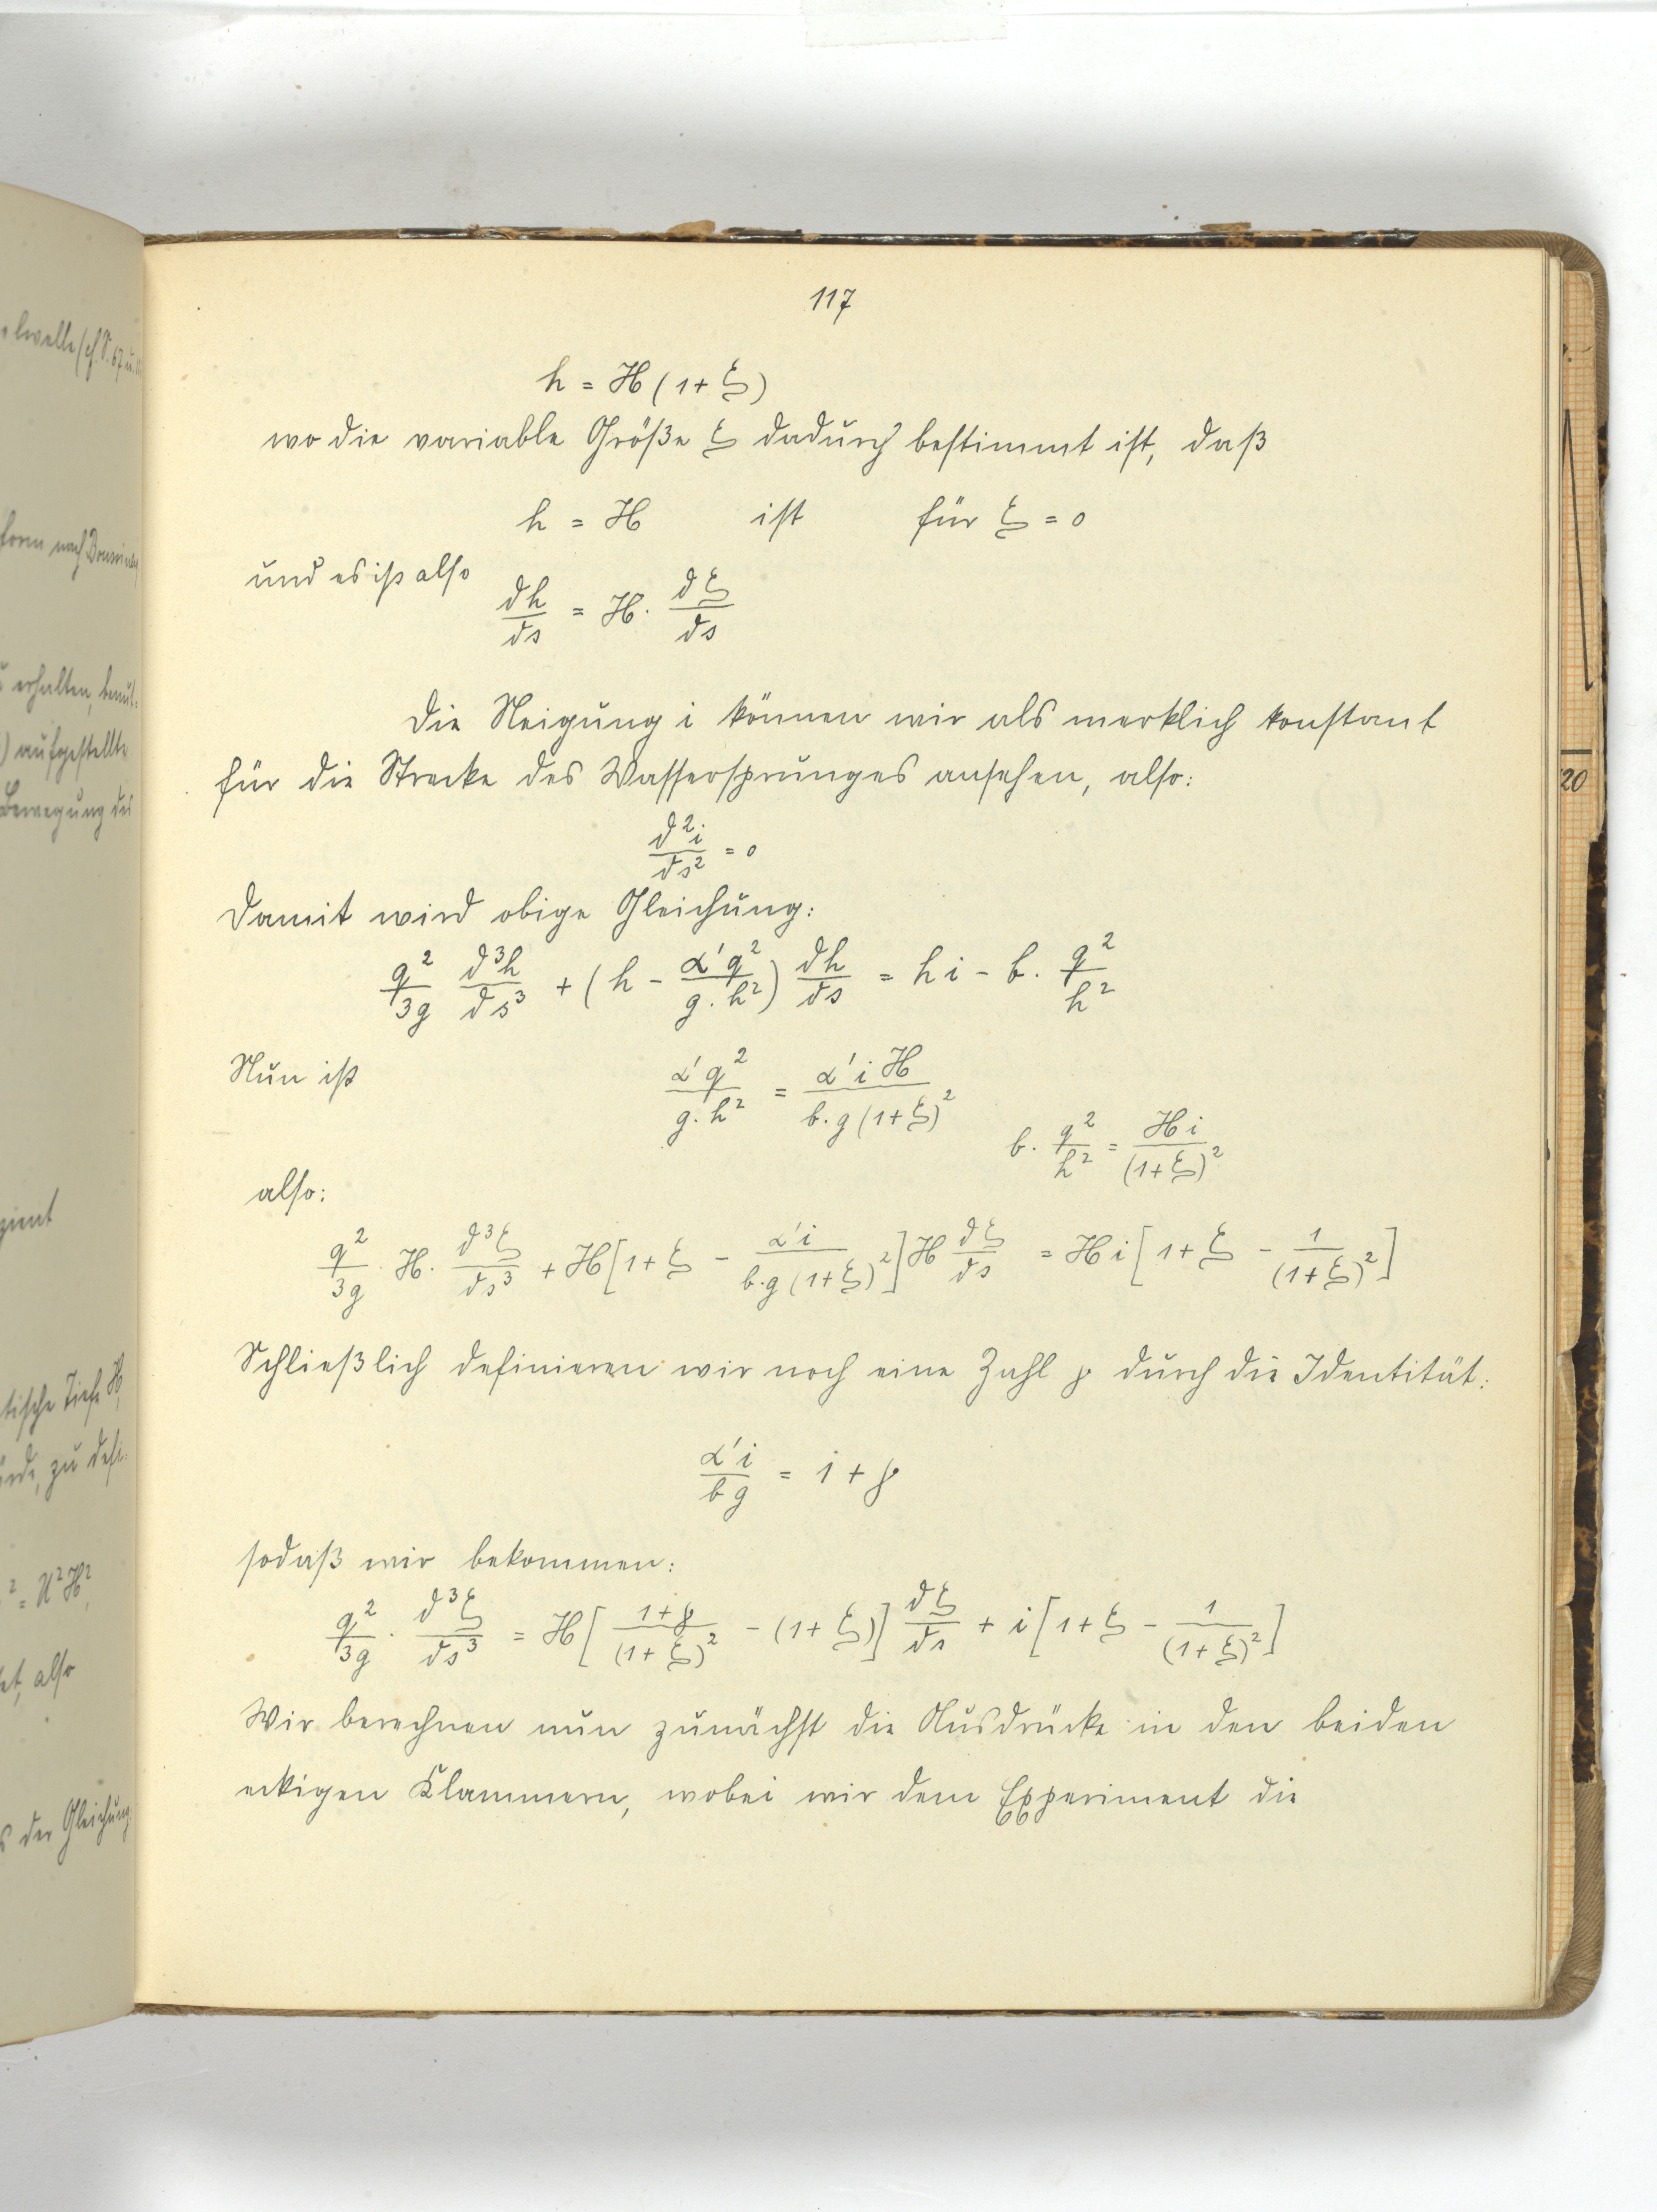 117
h = H (1 + ξ)
wo die variable Größe ξ dadurch bestimmt ist, daß
h = H ist für ξ = 0
und es ist also
dh/ds = H · dξ/ds
Die Neigung i können wir als merklich konstant
für die Strecke des Wassersprunges ansehen, also:
d²i/ds² = 0
Damit wird obige Gleichung:
q²/3g d³h/ds³ + (h - α'q²/g.h²) dh/ds = h i - b · q²/h²
Nun ist α'q²/g.h² = α' i H/b.g (1+ξ)²
b · q²/h² = H i/(1+ξ)²
also:
q²/3g · H · d³ξ/ds³ + H [1 + ξ - α'i/b.g (1+ξ)²] H dξ/ds = H i [1 + ξ - 1/(1+ξ)²]
Schließlich definieren wir noch eine Zahl γ durch die Identität:
α'i/bg = 1 + γ
sodaß wir bekommen:
q²/3g · d³ξ/ds³ = H [1+γ/(1+ξ)² - (1+ξ)] dξ/ds + i [1 + ξ - 1/(1+ξ)²]
Wir berechnen nun zunächst die Ausdrücke in den beiden
eckigen Klammern, wobei wir dem Experiment die
20
erhalten, benut-
) aufgestellte
Bewegung des
tische Tiefe H,
² = U²H²,
also
der Gleichung